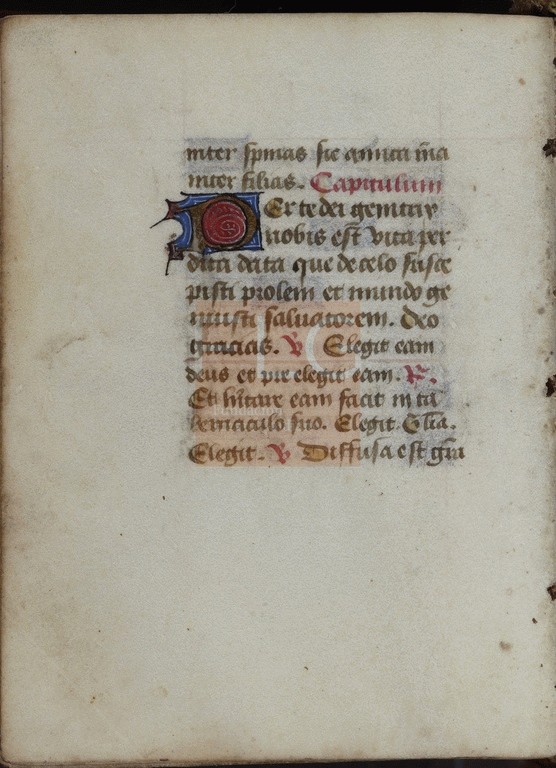 inter spinas sic amica mea
inter filias. Capitulum
PEr te dei genitrix
nobis est vita per
dita data que de celo susce
pisti prolem et mundo ge
nuisti salvatorem. deo
gracias. V Elegit eam
deus et pre elegit eam. R.
Et hitare eam facit in ta
bernaculo suo. Elegit. Glia.
Elegit. V Diffusa est gra